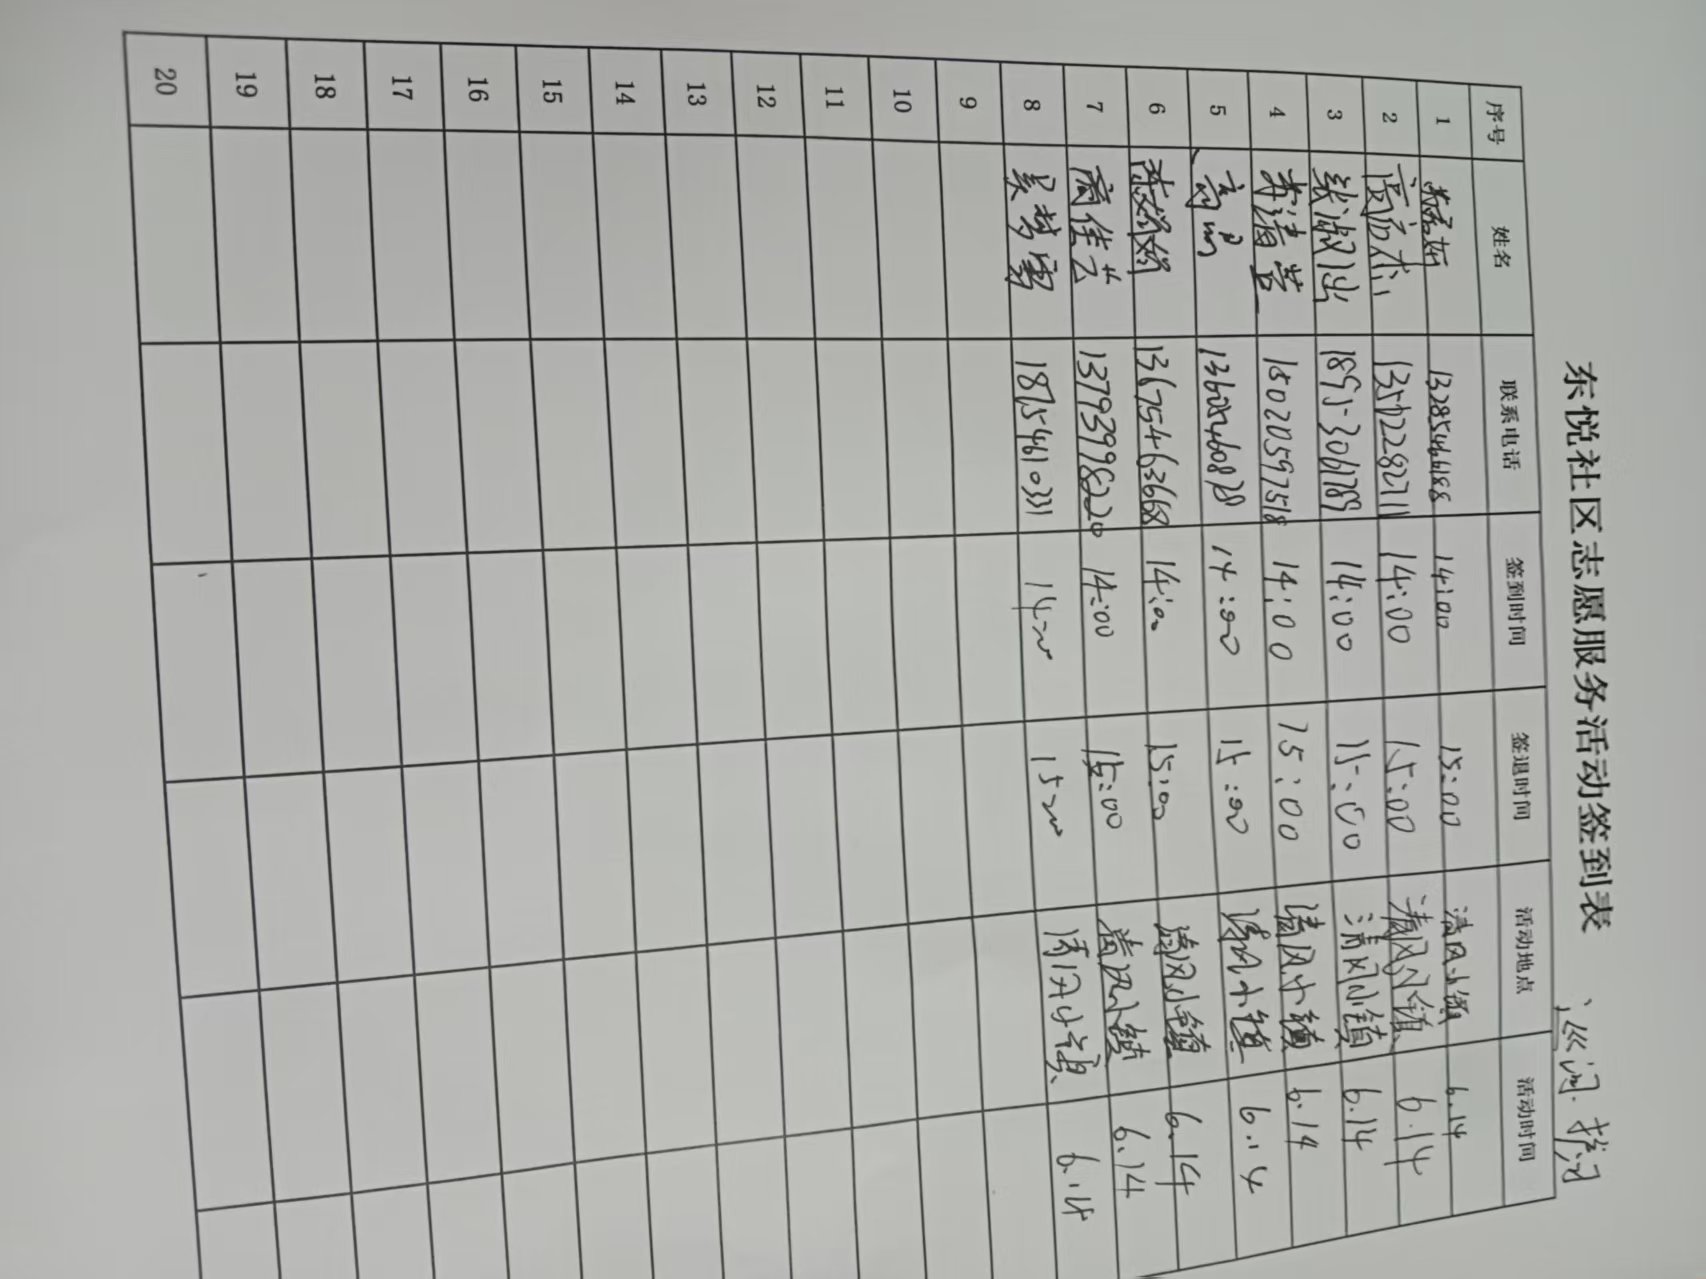 东悦社区志愿服务活动签到表
巡河 护河
序号 姓名 联系电话 签到时间 签退时间 活动地点 活动时间
1 13285466188 14:00 15:00 清风小镇 6.14
2 13507228271 14:00 15:00 清风小镇 6.14
3 张淑华 18953306789 14:00 15:00 清风小镇 6.14
4 李清营 15020597518 14:00 15:00 清风小镇 6.14
5 13605460878 14:00 15:00 清风小镇 6.14
6 13675463668 14:00 15:00 清风小镇 6.14
7 商佳芸 13793998220 14:00 15:00 清风小镇 6.14
8 吴梦雪 18754610331 14:00 15:00 清风小镇 6.14
9
10
11
12
13
14
15
16
17
18
19
20